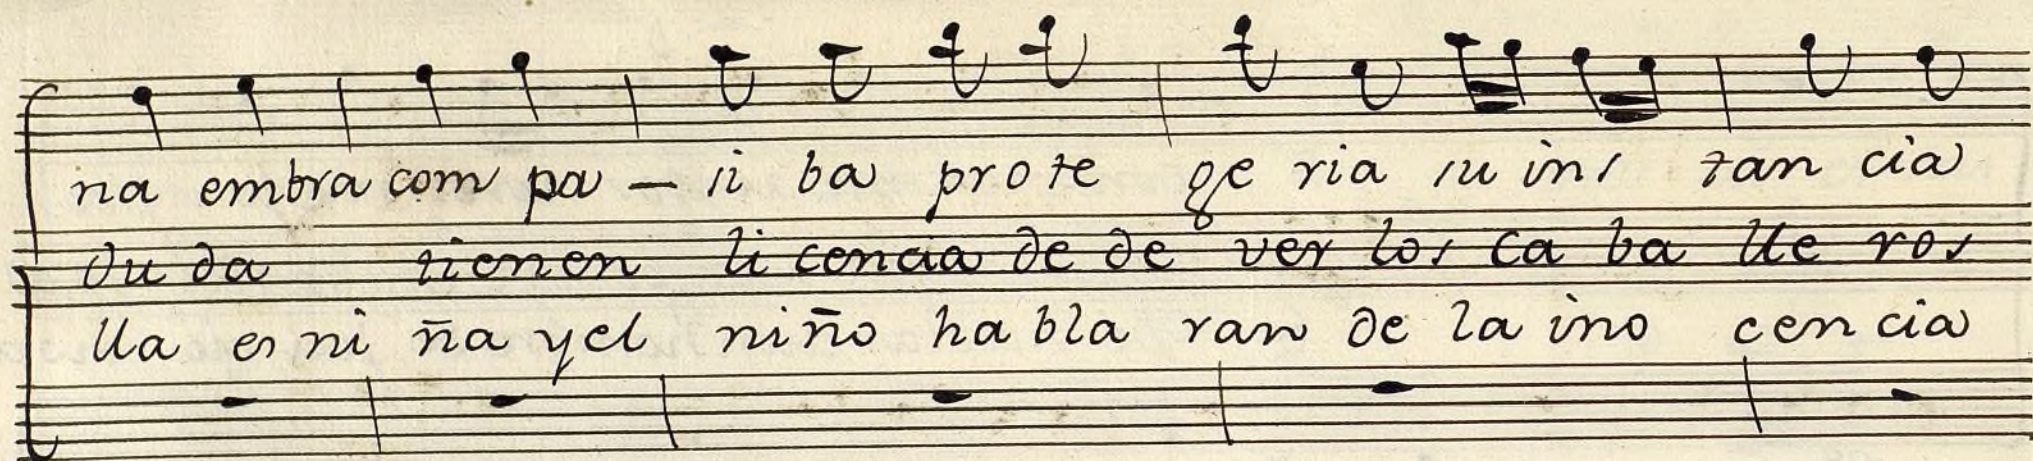 na embra com pa – si ba pro te ge ria su ins tan cia
du da tienen li cencia de de ver los ca ba lle ros
lla es ni ña y el niño ha bla ran de la ino cen cia